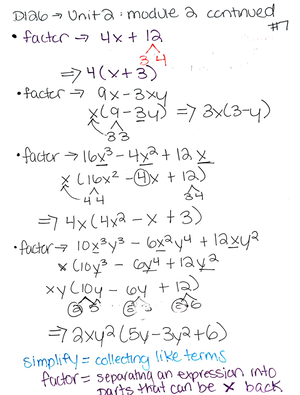 D126 → Unit 2 : module 2 continued
#7
• factor → 4x + 12
3 4
⇒ 4(x + 3)
• factor → 9x - 3xy
x(9 - 3y) ⇒ 3x(3-y)
3 3
• factor → 16x³ - 4x² + 12x
x(16x² - 4x + 12)
4 4 3 4
⇒ 4x(4x² - x + 3)
• factor → 10x³y³ - 6x²y⁴ + 12xy²
x(10y³ - 6y⁴ + 12y²
xy(10y - 6y + 12)
⇒ 2xy²(5y - 3y² + 6)
simplify = collecting like terms
factor = separating an expression into
parts that can be x back